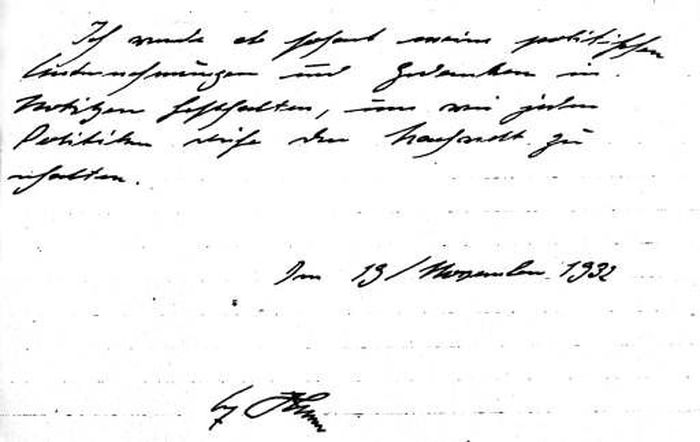 Ich werde ab sofort meine politischen
Unternehmungen und Gedanken in
Notizen festhalten, um wie jeder
Politiker der Nachwelt zu
erhalten.
Im November 1932